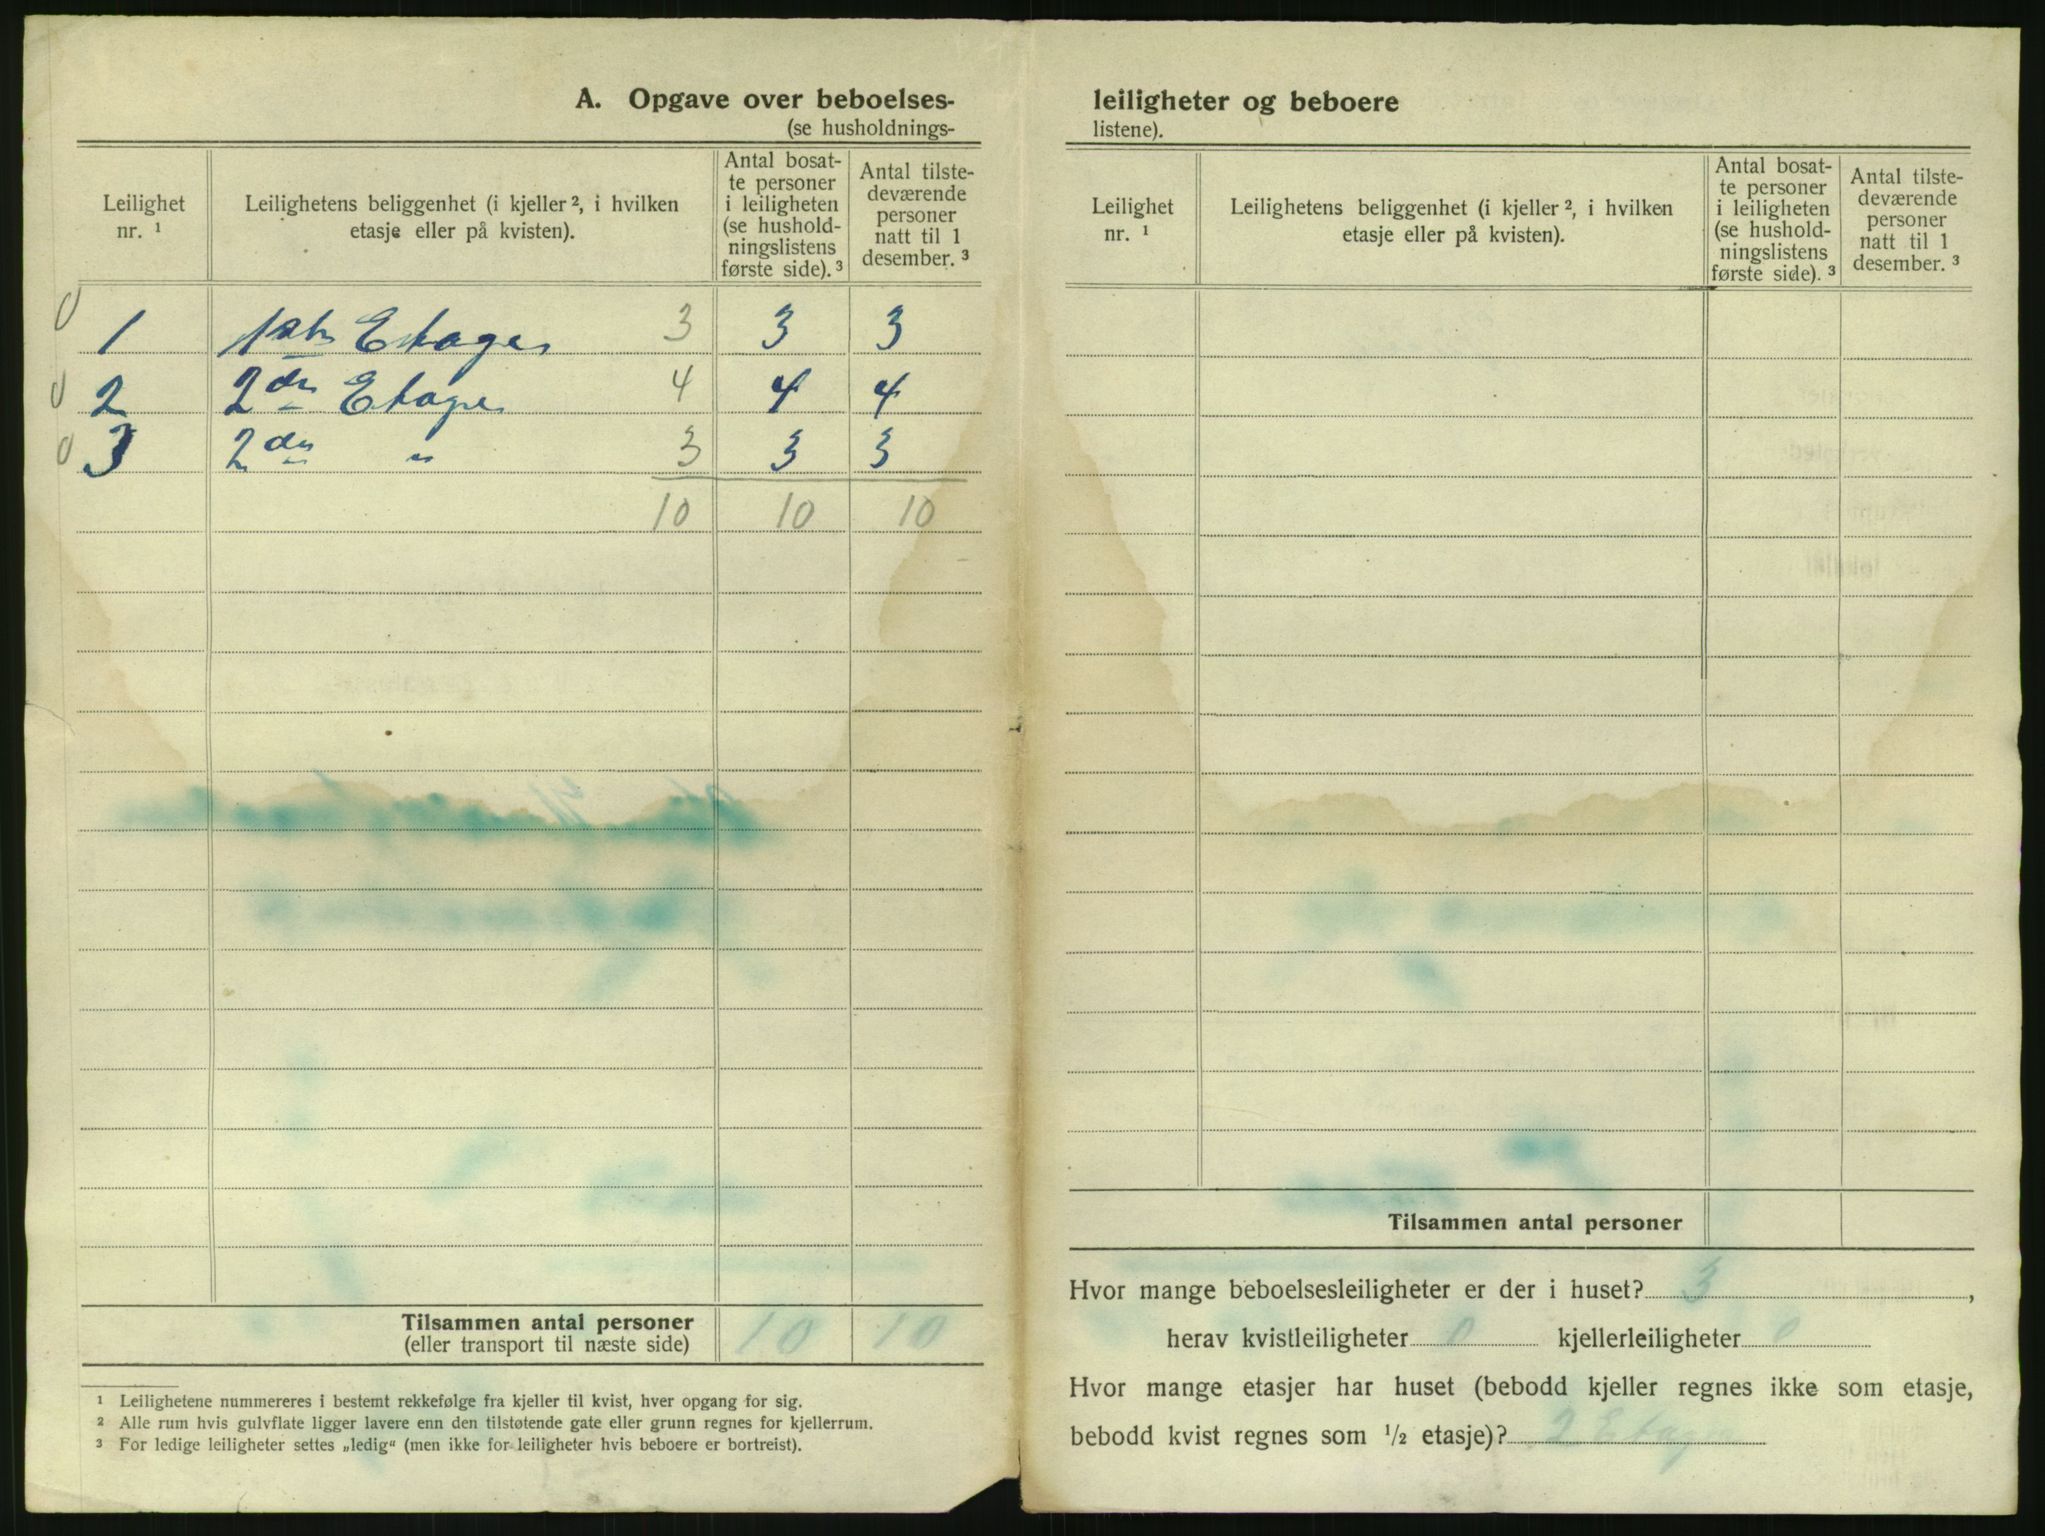 A. Opgave over beboelses-
(se husholdnings-
Leilighet
nr. ¹
Leilighetens beliggenhet (i kjeller ², i hvilken
etasje eller på kvisten).
Antal bosat-
te personer
i leiligheten
(se hushold-
ningslistens
første side). ³
Antal tilste-
deværende
personer
natt til 1
desember. ³
0 1 1ste Etage 3 3 3
0 2 2den Etage 4 4 4
0 3 2den " 3 3 3
10 10 10
Tilsammen antal personer 10 10
(eller transport til næste side)
¹ Leilighetene nummereres i bestemt rekkefølge fra kjeller til kvist, hver opgang for sig.
² Alle rum hvis gulvflate ligger lavere enn den tilstøtende gate eller grunn regnes for kjellerrum.
³ For ledige leiligheter settes „ledig“ (men ikke for leiligheter hvis beboere er bortreist).
leiligheter og beboere
listene).
Leilighet
nr. ¹
Leilighetens beliggenhet (i kjeller ², i hvilken
etasje eller på kvisten).
Antal bosat-
te personer
i leiligheten
(se hushold-
ningslistens
første side). ³
Antal tilste-
deværende
personer
natt til 1
desember. ³
Tilsammen antal personer
Hvor mange beboelsesleiligheter er der i huset? 3,
herav kvistleiligheter 0 kjellerleiligheter 0
Hvor mange etasjer har huset (bebodd kjeller regnes ikke som etasje,
bebodd kvist regnes som ½ etasje)? 2 Etager